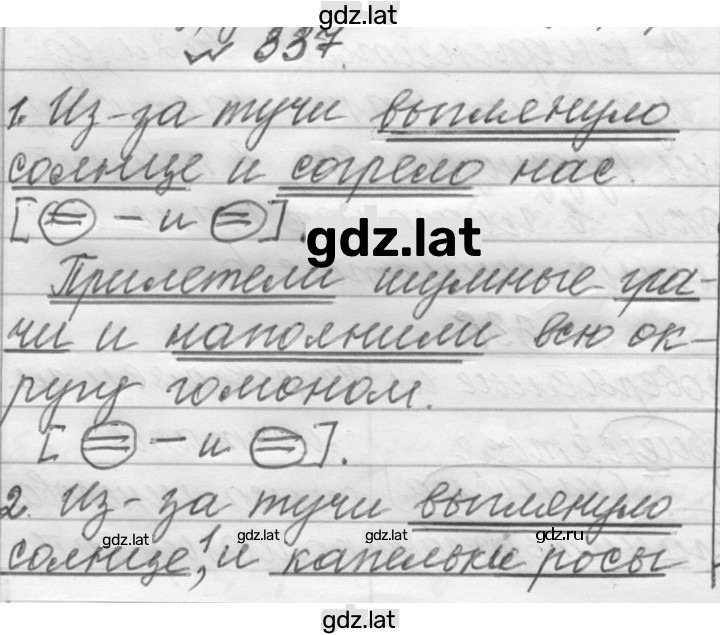 gdz.lat
№ 337.
1. Из-за тучи выглянуло
солнце и согрело нас.
[= – и =].
gdz.lat
Прилетели шумные гра-
чи и наполнили всю ок-
ругу гомоном.
[= – и =].
2. Из-за тучи выглянуло
gdz.lat gdz.lat gdz.lat gdz.ru
солнце,¹ и капельки росы
gdz.lat